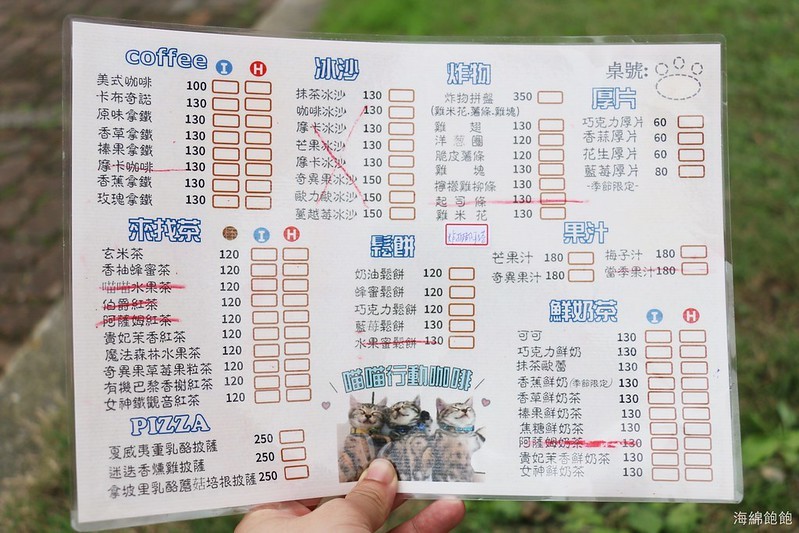 coffee I H
美式咖啡 100
卡布奇諾 130
原味拿鐵 130
香草拿鐵 130
榛果拿鐵 130
摩卡咖啡 130
香蕉拿鐵 130
玫瑰拿鐵 130
冰沙
抹茶冰沙 130
咖啡冰沙 130
摩卡冰沙 130
芒果冰沙 130
摩卡冰沙 130
奇異果冰沙 150
歐力歐冰沙 150
蔓越莓冰沙 150
炸物
炸物拼盤 350
(雞米花.薯條.雞塊)
雞翅 130
洋蔥圈 120
脆皮薯條 120
雞塊 130
檸檬雞柳條 130
起司條 130
雞米花 130
桌號:
厚片
巧克力厚片 60
香蒜厚片 60
花生厚片 60
藍莓厚片 80
-季節限定-
來找茶 I H
玄米茶 120
香柚蜂蜜茶 120
喵喵水果茶 120
伯爵紅茶 120
阿薩姆紅茶 120
貴妃茉香紅茶 120
魔法森林水果茶 120
奇異果草莓果粒茶 120
有機巴黎香榭紅茶 120
女神鐵觀音紅茶 120
鬆餅
奶油鬆餅 120
蜂蜜鬆餅 120
巧克力鬆餅 120
藍莓鬆餅 130
水果蜜鬆餅 130
果汁
芒果汁 180
奇異果汁 180
梅子汁 180
當季果汁 180
鮮奶茶 I H
可可 130
巧克力鮮奶 130
抹茶歐蕾 130
香蕉鮮奶(季節限定) 130
香草鮮奶茶 130
榛果鮮奶茶 130
焦糖鮮奶茶 130
阿薩姆奶茶 130
貴妃茉香鮮奶茶 130
女神鮮奶茶 130
PIZZA
夏威夷重乳酪披薩 250
迷迭香燻雞披薩 250
拿坡里乳酪蘑菇培根披薩 250
喵喵行動咖啡
海綿飽飽